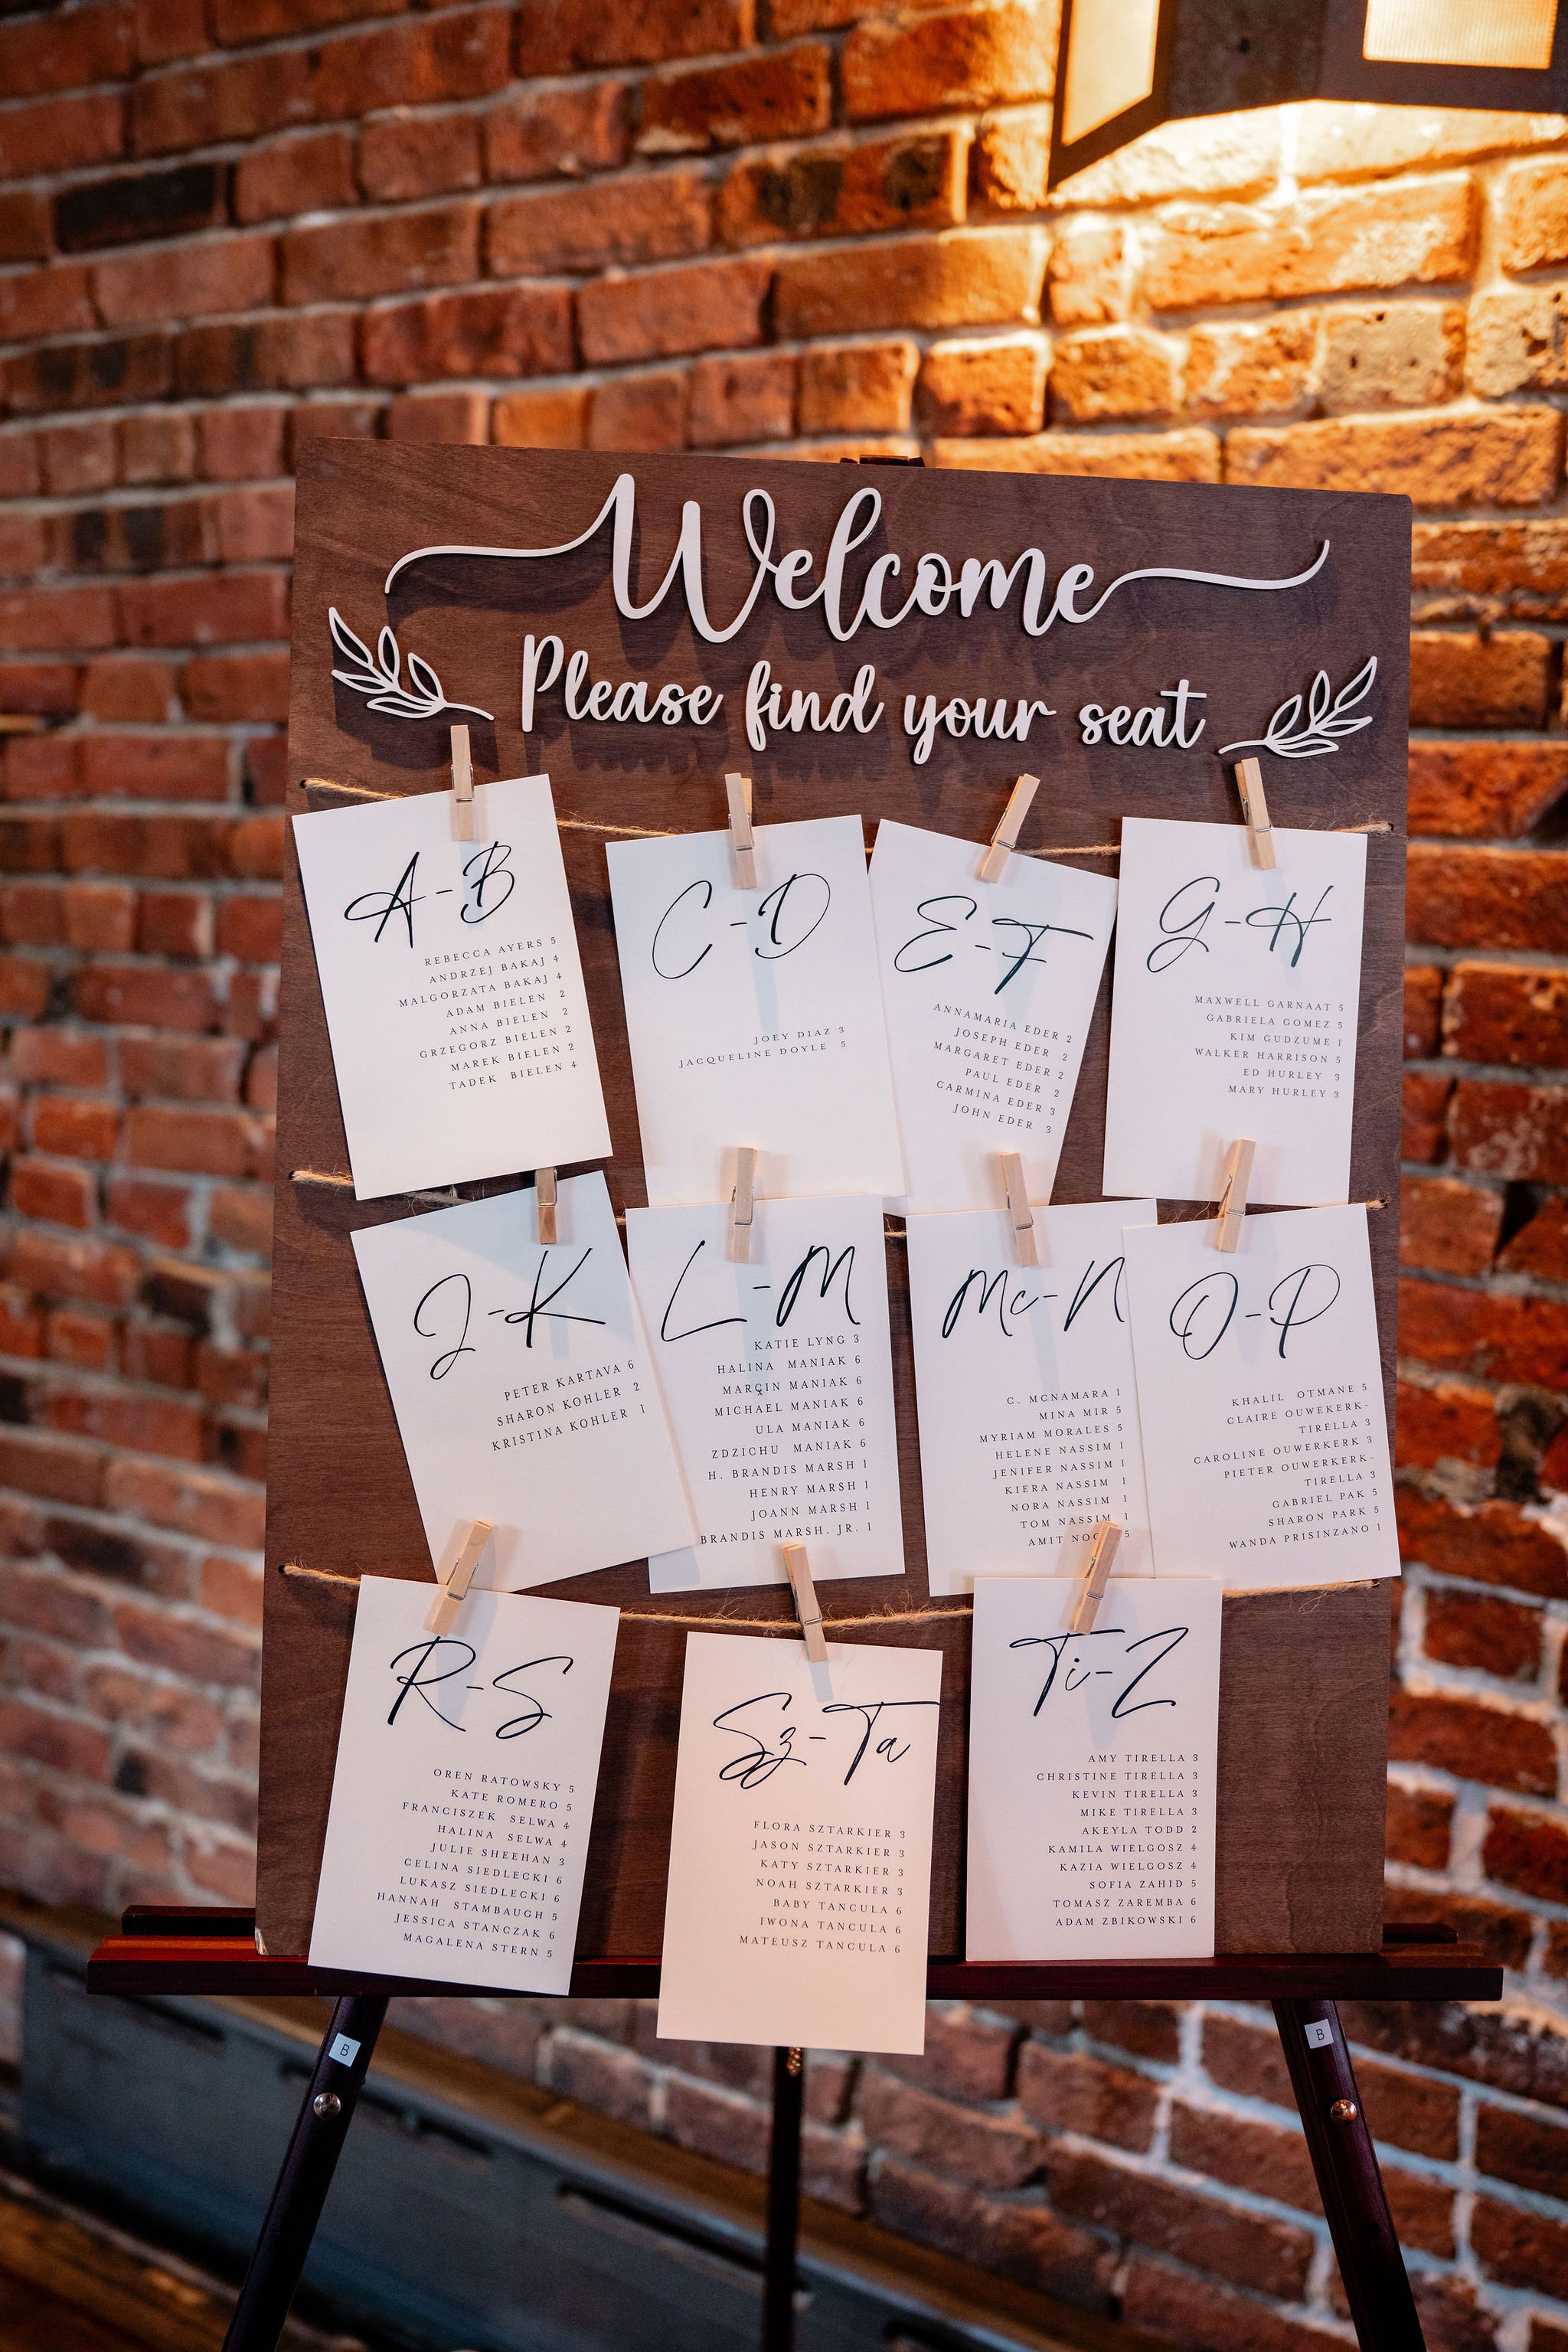 Welcome
Please find your seat
A-B
REBECCA AYERS 5
ANDRZEJ BAKAJ 4
MALGORZATA BAKAJ 4
ADAM BIELEN 2
ANNA BIELEN 2
GRZEGORZ BIELEN 2
MAREK BIELEN 2
TADEK BIELEN 4
C-D
JOEY DIAZ 3
JACQUELINE DOYLE 5
E-F
ANNAMARIA EDER 2
JOSEPH EDER 2
MARGARET EDER 2
PAUL EDER 2
CARMINA EDER 3
JOHN EDER 3
G-H
MAXWELL GARNAAT 5
GABRIELA GOMEZ 5
KIM GUDZUME 1
WALKER HARRISON 5
ED HURLEY 3
MARY HURLEY 3
J-K
PETER KARTAVA 6
SHARON KOHLER 2
KRISTINA KOHLER 1
L-M
KATIE LYNG 3
HALINA MANIAK 6
MARCIN MANIAK 6
MICHAEL MANIAK 6
ULA MANIAK 6
ZDZICHU MANIAK 6
H. BRANDIS MARSH 1
HENRY MARSH 1
JOANN MARSH 1
BRANDIS MARSH. JR. 1
Mc-N
C. MCNAMARA 1
MINA MIR 5
MYRIAM MORALES 5
HELENE NASSIM 1
JENIFER NASSIM 1
KIERA NASSIM 1
NORA NASSIM 1
TOM NASSIM 1
AMIT 5
O-P
KHALIL OTMANE 5
CLAIRE OUWEKERK-
TIRELLA 3
CAROLINE OUWERKERK 3
PIETER OUWERKERK-
TIRELLA 3
GABRIEL PAK 5
SHARON PARK 5
WANDA PRISINZANO 1
R-S
OREN RATOWSKY 5
KATE ROMERO 5
FRANCISZEK SELWA 4
HALINA SELWA 4
JULIE SHEEHAN 3
CELINA SIEDLECKI 6
LUKASZ SIEDLECKI 6
HANNAH STAMBAUGH 5
JESSICA STANCZAK 6
MAGALENA STERN 5
Sz-Ta
FLORA SZTARKIER 3
JASON SZTARKIER 3
KATY SZTARKIER 3
NOAH SZTARKIER 3
BABY TANCULA 6
IWONA TANCULA 6
MATEUSZ TANCULA 6
Ti-Z
AMY TIRELLA 3
CHRISTINE TIRELLA 3
KEVIN TIRELLA 3
MIKE TIRELLA 3
AKEYLA TODD 2
KAMILA WIELGOSZ 4
KAZIA WIELGOSZ 4
SOFIA ZAHID 5
TOMASZ ZAREMBA 6
ADAM ZBIKOWSKI 6
B
B